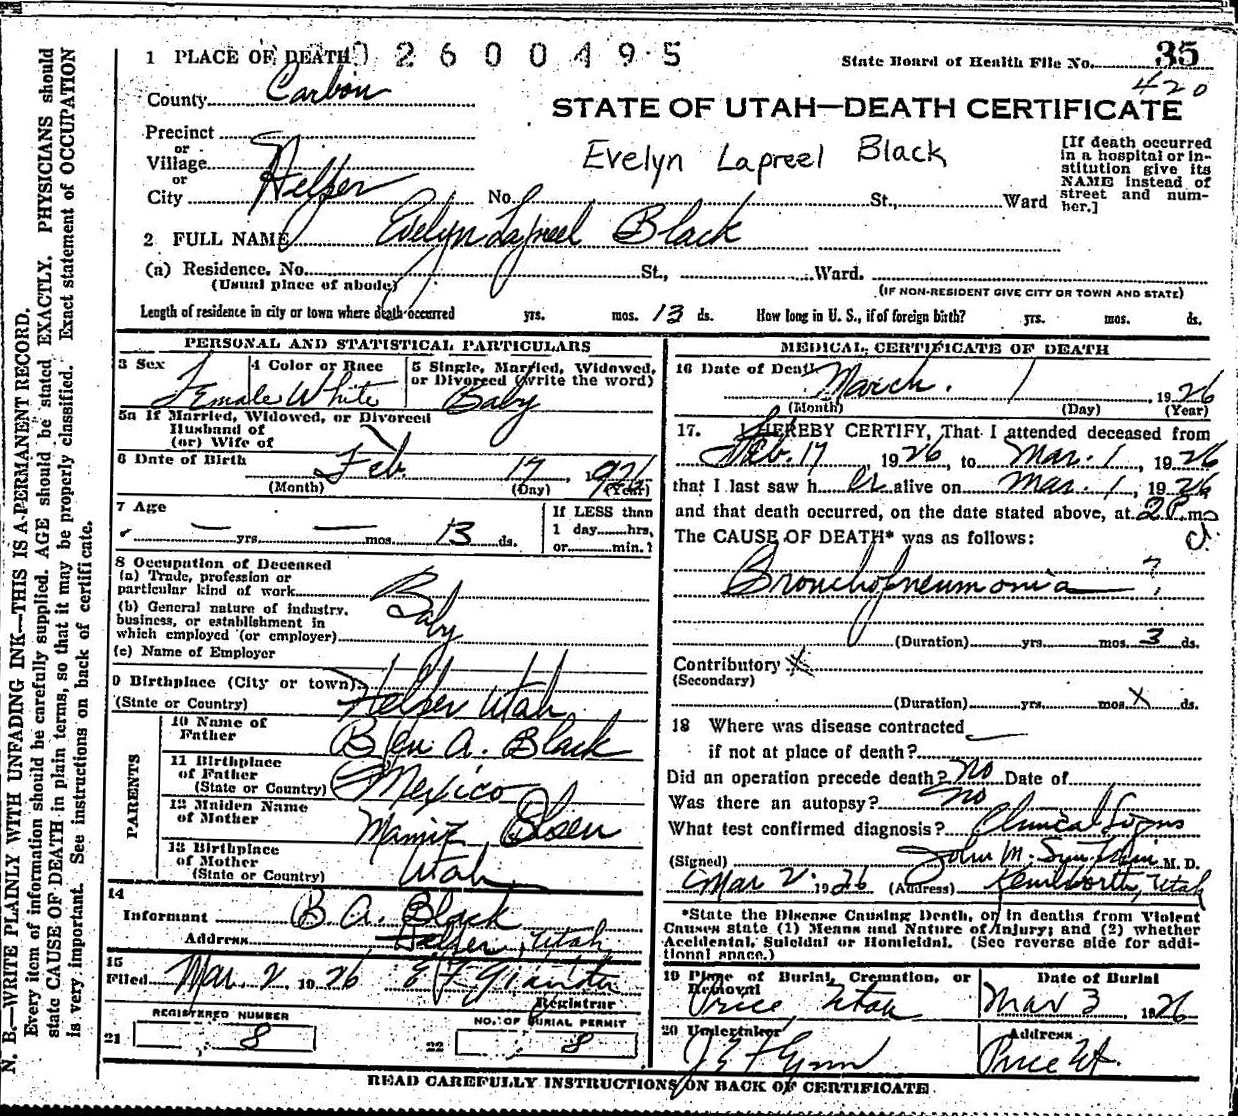 1 PLACE OF DEATH 02600495
State Board of Health File No. 35
420
County Carbon
STATE OF UTAH—DEATH CERTIFICATE
Precinct
or
Village
or
City Helper
Evelyn Lapreel Black
[If death occurred
in a hospital or in-
stitution give its
NAME instead of
street and num-
ber.]
No. St., Ward
2 FULL NAME Evelyn Lapreel Black
(a) Residence. No. St., Ward.
(Usual place of abode)
(IF NON-RESIDENT GIVE CITY OR TOWN AND STATE)
Length of residence in city or town where death occurred yrs. mos. 13 ds. How long in U. S., if of foreign birth? yrs. mos. ds.
PERSONAL AND STATISTICAL PARTICULARS
3 Sex Female
4 Color or Race White
5 Single, Married, Widowed,
or Divorced (write the word)
Baby
5a If Married, Widowed, or Divorced
Husband of
(or) Wife of
6 Date of Birth Feb. 17, 1926
(Month) (Day) (Year)
7 Age
— yrs. — mos. 13 ds.
If LESS than
1 day hrs,
or min.?
8 Occupation of Deceased
(a) Trade, profession or
particular kind of work
Baby
(b) General nature of industry,
business, or establishment in
which employed (or employer)
(c) Name of Employer
9 Birthplace (City or town)
(State or Country) Helper Utah
PARENTS
10 Name of
Father Ben A. Black
11 Birthplace
of Father
(State or Country) Mexico
12 Maiden Name
of Mother Olsen
13 Birthplace
of Mother
(State or Country) Utah
14
Informant B A. Black
Address Helper, Utah
15
Filed Mar. 2 1926
Registrar
REGISTERED NUMBER
21 8
NO. OF BURIAL PERMIT
22 8
MEDICAL CERTIFICATE OF DEATH
16 Date of Death March. 1 1926
(Month) (Day) (Year)
17. I HEREBY CERTIFY, That I attended deceased from
Feb. 17, 1926, to Mar. 1, 1926
that I last saw her alive on Mar. 1, 1926
and that death occurred, on the date stated above, at 2 P. m
The CAUSE OF DEATH* was as follows:
Bronchopneumonia ?
(Duration) yrs. mos. 3 ds.
Contributory x
(Secondary)
(Duration) yrs. mos. x ds.
18 Where was disease contracted
if not at place of death?
Did an operation precede death? no Date of
Was there an autopsy? no
What test confirmed diagnosis? Clinical Signs
(Signed) John M. M. D.
Mar 2. 1926 (Address) Kenilworth, Utah
*State the Disease Causing Death, or in deaths from Violent
Causes state (1) Means and Nature of Injury; and (2) whether
Accidental, Suicidal or Homicidal. (See reverse side for addi-
tional space.)
19 Place of Burial, Cremation, or
Removal
Price, Utah
Date of Burial
Mar 3, 1926
20 Undertaker
J E Flynn
Address
Price Ut.
READ CAREFULLY INSTRUCTIONS ON BACK OF CERTIFICATE
N. B.—WRITE PLAINLY WITH UNFADING INK—THIS IS A PERMANENT RECORD.
Every item of information should be carefully supplied. AGE should be stated EXACTLY. PHYSICIANS should
state CAUSE OF DEATH in plain terms, so that it may be properly classified. Exact statement of OCCUPATION
is very important. See instructions on back of certificate.